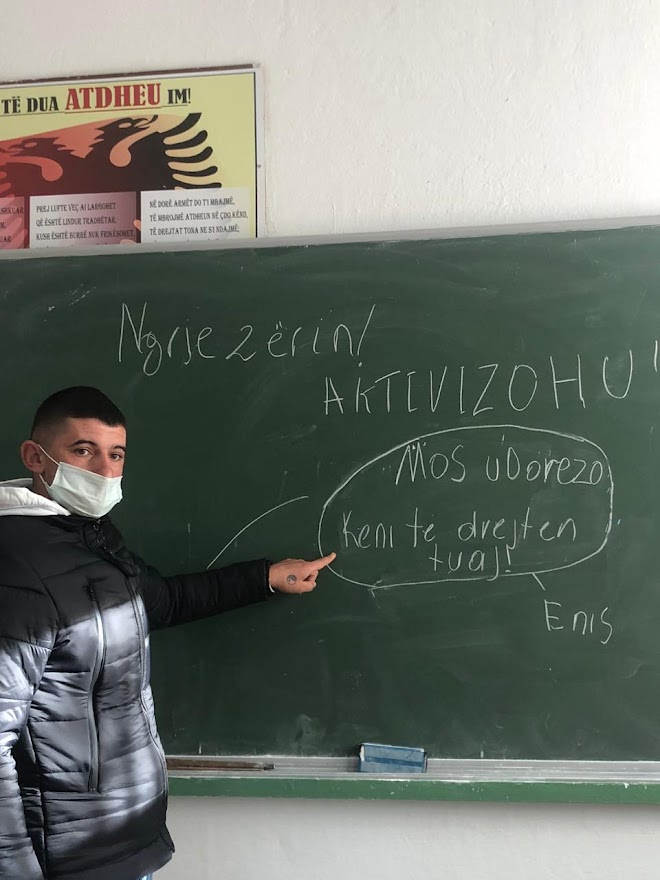 TË DUA ATDHEU IM!
PREJ LUFTE VEÇ AI LARGOHET
QË ËSHTË LINDUR TRADHËTAR,
KUSH ËSHTË BURRË NUK FRIKËSOHET,
NË DORË ARMËT DO T'I MBAJMË,
TË MBROJMË ATDHEUN NË ÇDO KËND,
TË DREJTAT TONA NE S'I NDAJMË;
Ngrje zërin!
AKTIVIZOHU"
Mos uDorezo
Keni të drejten
tuaj!
Enis